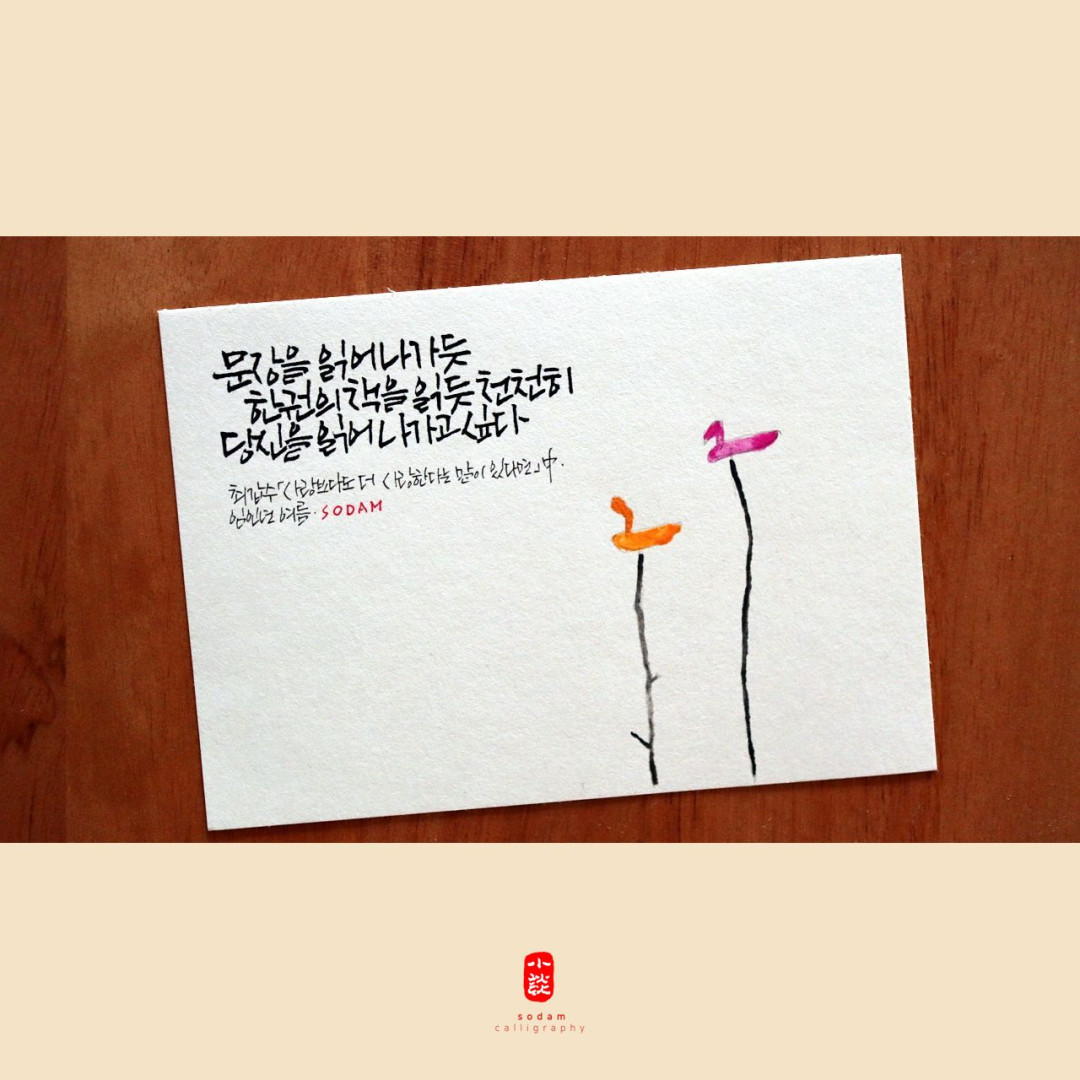 문장을 읽어나가듯
한권의 책을 읽듯 천천히
당신을 읽어 나가고 싶다
최갑수「사랑보다도 더 사랑한다는 말이 있다면」中.
임인년 여름. SODAM
小談
sodam
calligraphy